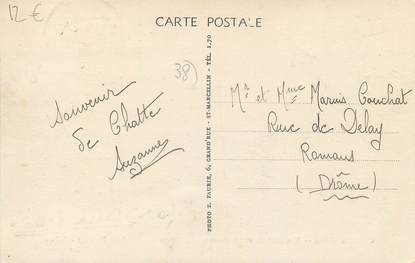 12 €
CARTE POSTALE
38)
Souvenir
de Chatte
Suzanne
PHOTO E. FAURIE, 6, GRAND'RUE - ST-MARCELLIN - TÉL. 1.70
Mr et Mme Marius Couchat
Rue de Delay
Romans
(Drôme)